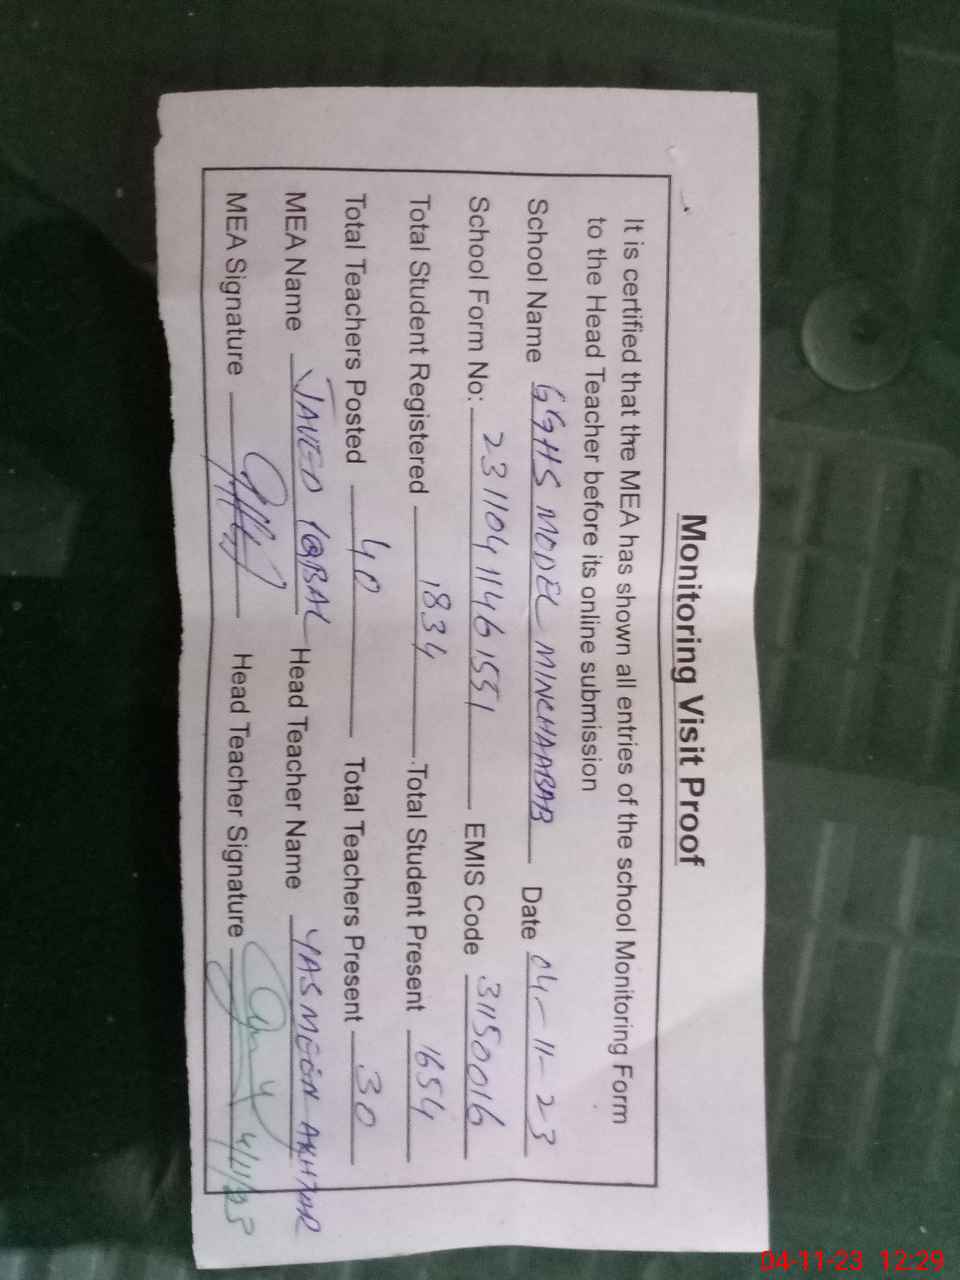 Monitoring Visit Proof
It is certified that the MEA has shown all entries of the school Monitoring Form
to the Head Teacher before its online submission
School Name GGHS MODEL MINCHAABAB Date 04-11-23
School Form No: 23110411461551 EMIS Code 31150016
Total Student Registered 1834 Total Student Present 1654
Total Teachers Posted 40 Total Teachers Present 30
MEA Name JAVED IQBAL Head Teacher Name YASMEEN AKHTAR
MEA Signature Head Teacher Signature 4/11/23
04-11-23 12:29